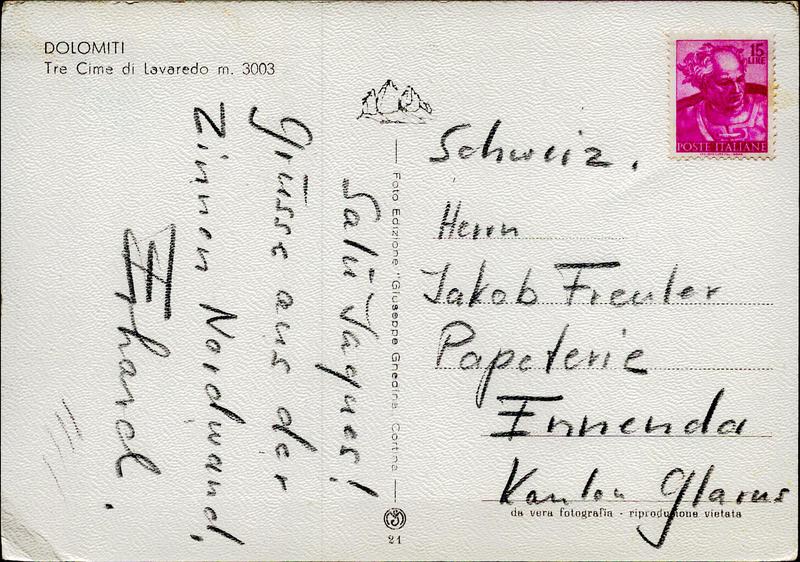 DOLOMITI
Tre Cime di Lavaredo m. 3003
15
LIRE
POSTE ITALIANE
Salü Jaques!
Grüsse aus der
Zinnen Nordwand,
Erhard.
Foto Edizione "Giuseppe Ghedina" Cortina
21
Schweiz.
Herrn
Jakob Freuler
Papeterie
Ennenda
Kanton Glarus
da vera fotografia - riproduzione vietata